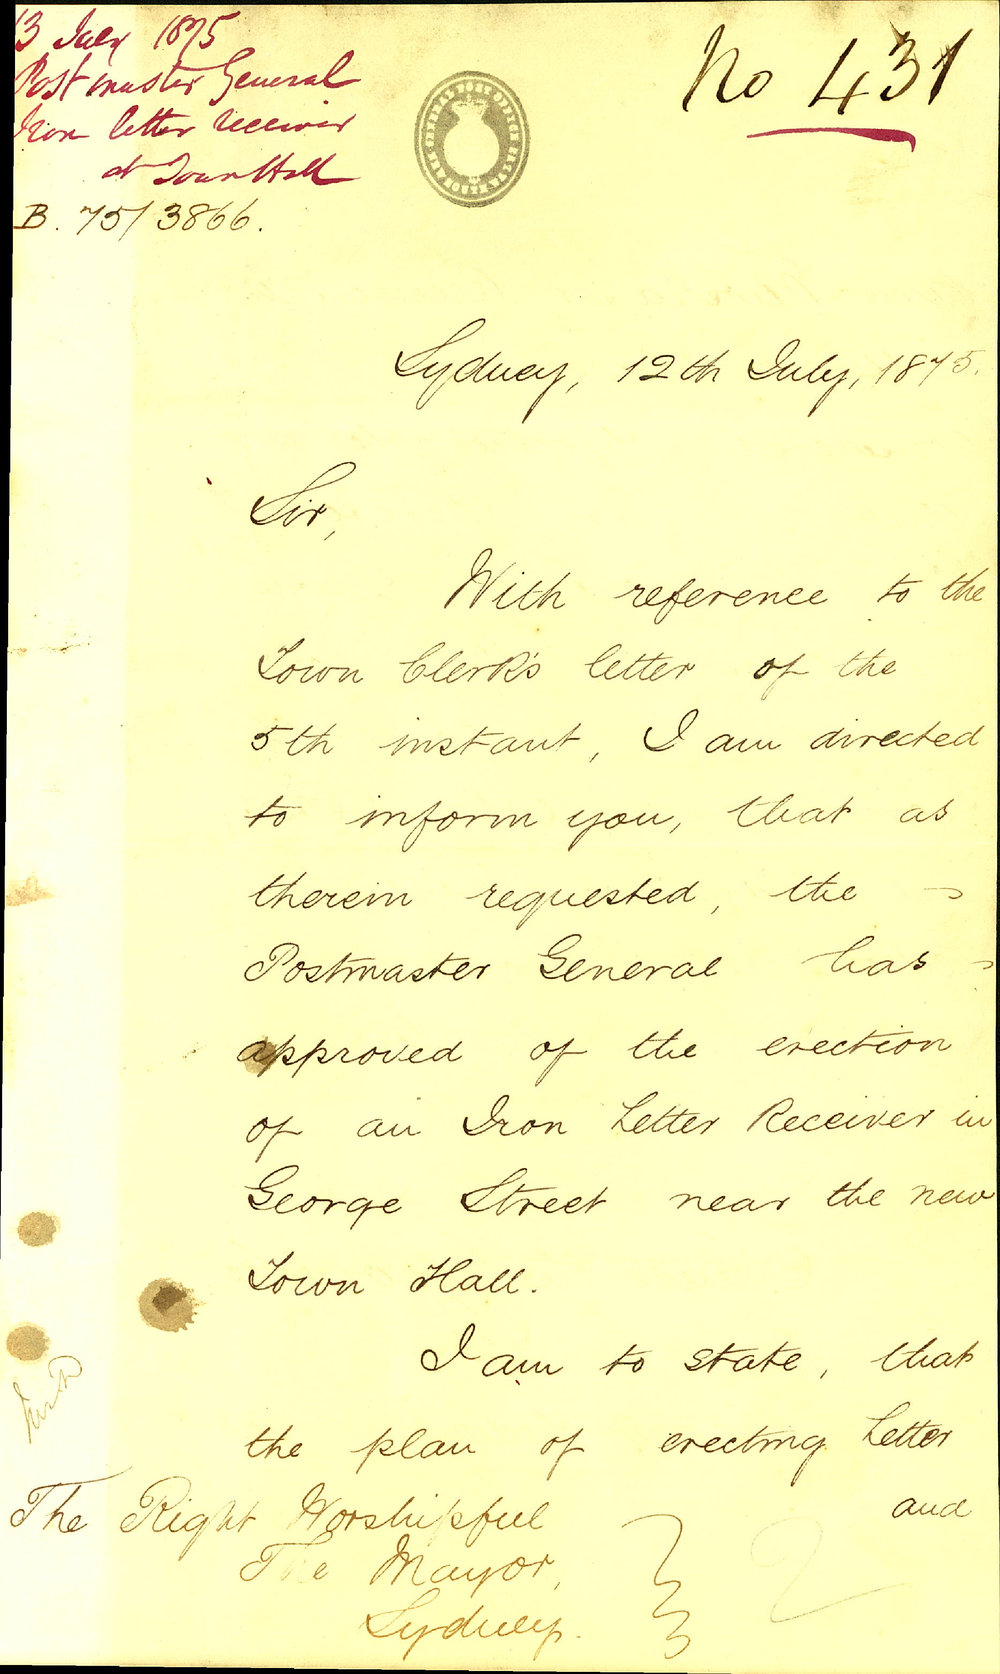 13 July 1875
Postmaster General
Iron letter receiver
at Town Hall
B. 75/3866.
No 431
Sydney, 12th July, 1875.
Sir,
With reference to the
Town Clerk's letter of the
5th instant, I am directed
to inform you, that as
therein requested, the
Postmaster General has
approved of the erection
of an Iron Letter Receiver in
George Street near the new
Town Hall.
I am to state, that
the plan of erecting Letter
and
The Right Worshipful
The Mayor,
Sydney.
2